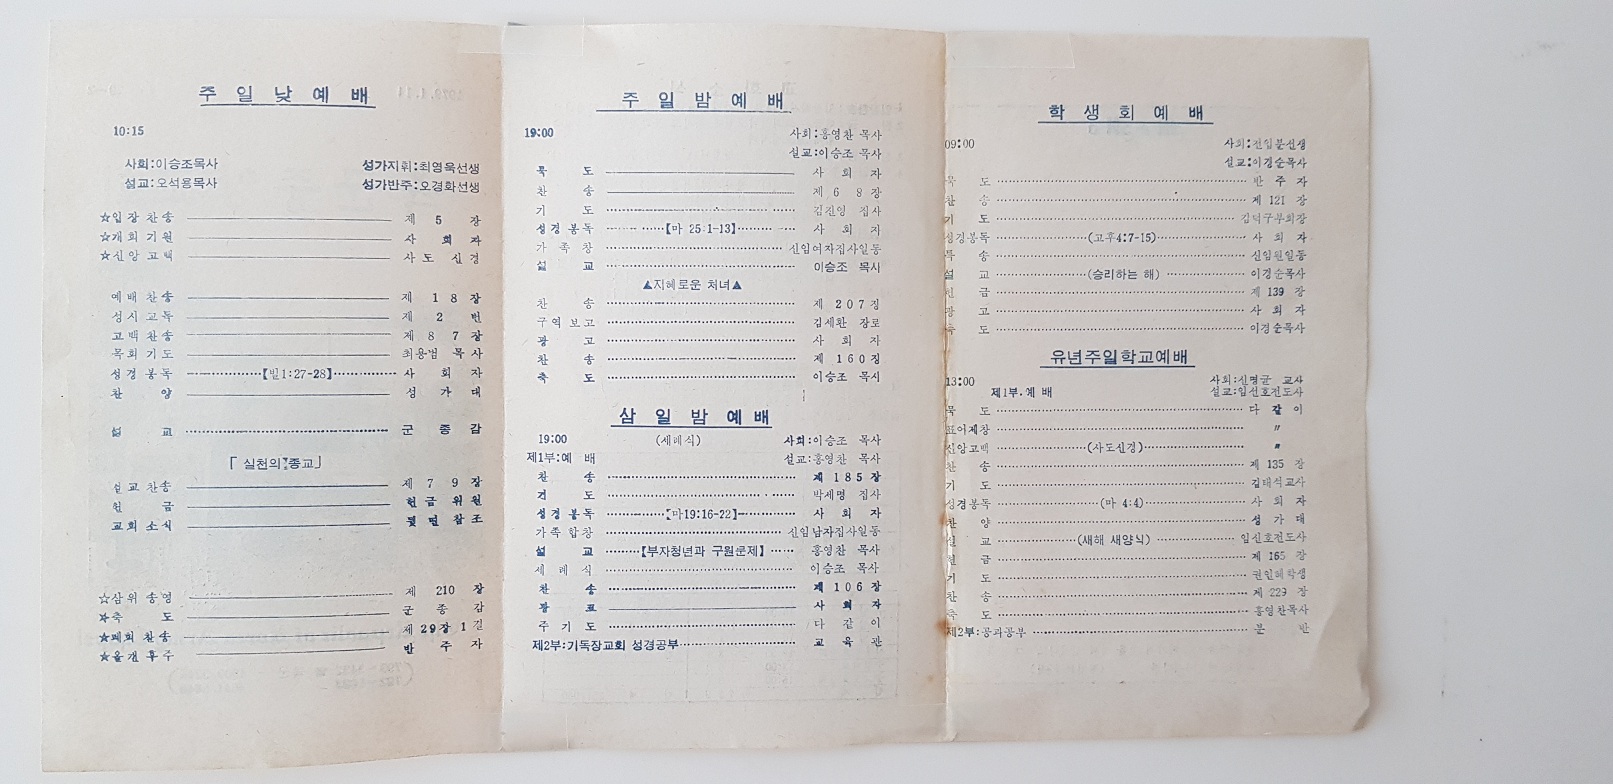 주 일 낮 예 배
10:15
사회:이승조목사 성가지휘:최영욱선생
설교:오석용목사 성가반주:오경화선생
☆입장찬송 제 5 장
☆개회기원 사 회 자
☆신앙고백 사도 신경
예배찬송 제 1 8 장
성시교독 제 2 번
고백찬송 제 8 7 장
목회기도 최용범 목사
성경봉독 【빌1:27-28】 사 회 자
찬 양 성 가 대
설 교 군 종 감
「실천의 종교」
설교찬송 제 7 9 장
헌 금 헌금 위원
교회소식 뒷면 참조
☆삼위송영 제 210 장
☆축 도 군 종 감
☆폐회찬송 제29장 1절
☆올갠후주 반 주 자
주 일 밤 예 배
19:00 사회:홍영찬 목사
설교:이승조 목사
묵 도 사 회 자
찬 송 제 6 8 장
기 도 김진영 집사
성경봉독 【마 25:1-13】 사 회 자
가 족 창 신임여자집사일동
설 교 이승조 목사
▲지혜로운 처녀▲
찬 송 제 207장
구역보고 김세환 장로
광 고 사 회 자
찬 송 제 160장
축 도 이승조 목사
삼 일 밤 예배
19:00 (세례식) 사회:이승조 목사
제1부:예 배 설교:홍영찬 목사
찬 송 제 185장
기 도 박세명 집사
성경봉독 【마19:16-22】 사 회 자
가족합창 신임남자집사일동
설 교 【부자청년과 구원문제】 홍영찬 목사
세 례 식 이승조 목사
찬 송 제 106장
광 고 사 회 자
주 기 도 다 같 이
제2부:기독장교회 성경공부 교 육 관
학 생 회 예 배
09:00 사회:전입분선생
설교:이경순목사
묵 도 반 주 자
찬 송 제 121 장
기 도 김덕구부회장
성경봉독 (고후4:7-15) 사 회 자
특 송 신임원일동
설 교 (승리하는 해) 이경순목사
헌 금 제 139 장
광 고 사 회 자
축 도 이경순목사
유년주일학교예배
13:00 사회:신명균 교사
제1부.예 배 설교:임선호전도사
묵 도 다 같 이
표어제창 〃
신앙고백 (사도신경) 〃
찬 송 제 135 장
기 도 김태석교사
성경봉독 (마 4:4) 사 회 자
찬 양 성 가 대
설 교 (새해 새양식) 임선호전도사
헌 금 제 165 장
기 도 권인혜학생
찬 송 제 229 장
축 도 홍영찬목사
제2부:공과공부 분 반